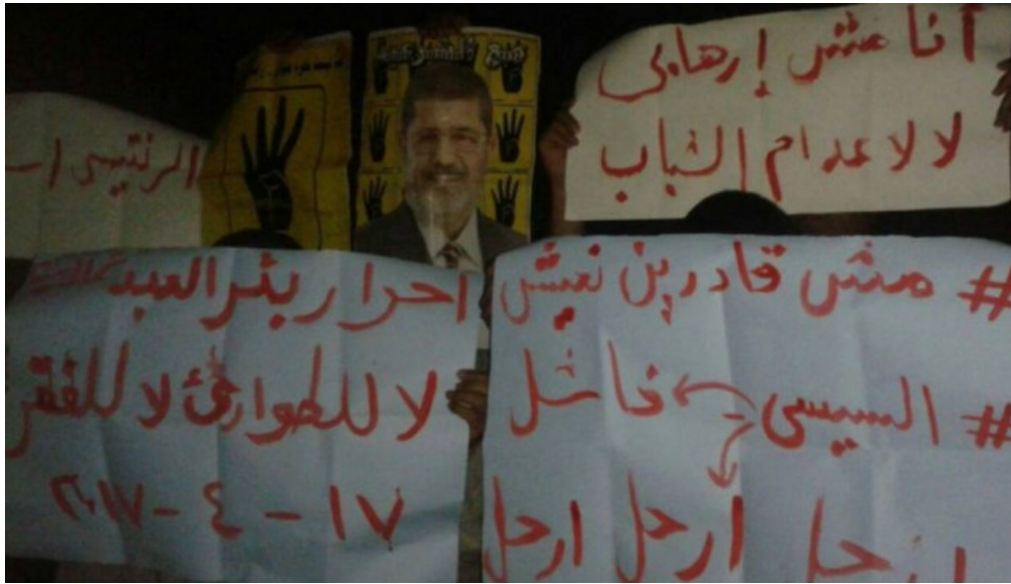 أنا مش إرهابى
لا لا عدام الشباب
الرنتيسى
# مش قادرين نعيش
# السيسى فاشل
ارحل ارحل ارحل
احرار بئر العبد
لا للطوارئ لا للفقر
١٧ - ٤ - ٢٠١٧